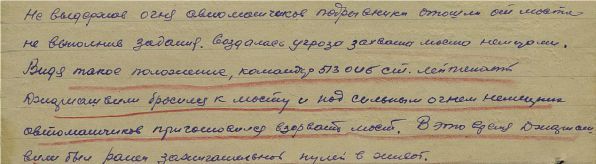 Не выдержав огня автоматчиков подрывники отошли от моста
не выполнив задания. Создалась угроза захвата моста немцами.
Видя такое положение, командир 513 ОИБ ст. лейтенант
Джариашвили бросился к мосту и под сильным огнем немецких
автоматчиков приготовился взорвать мост. В это время Джариаш
вили был ранен зажигательной пулей в живот.